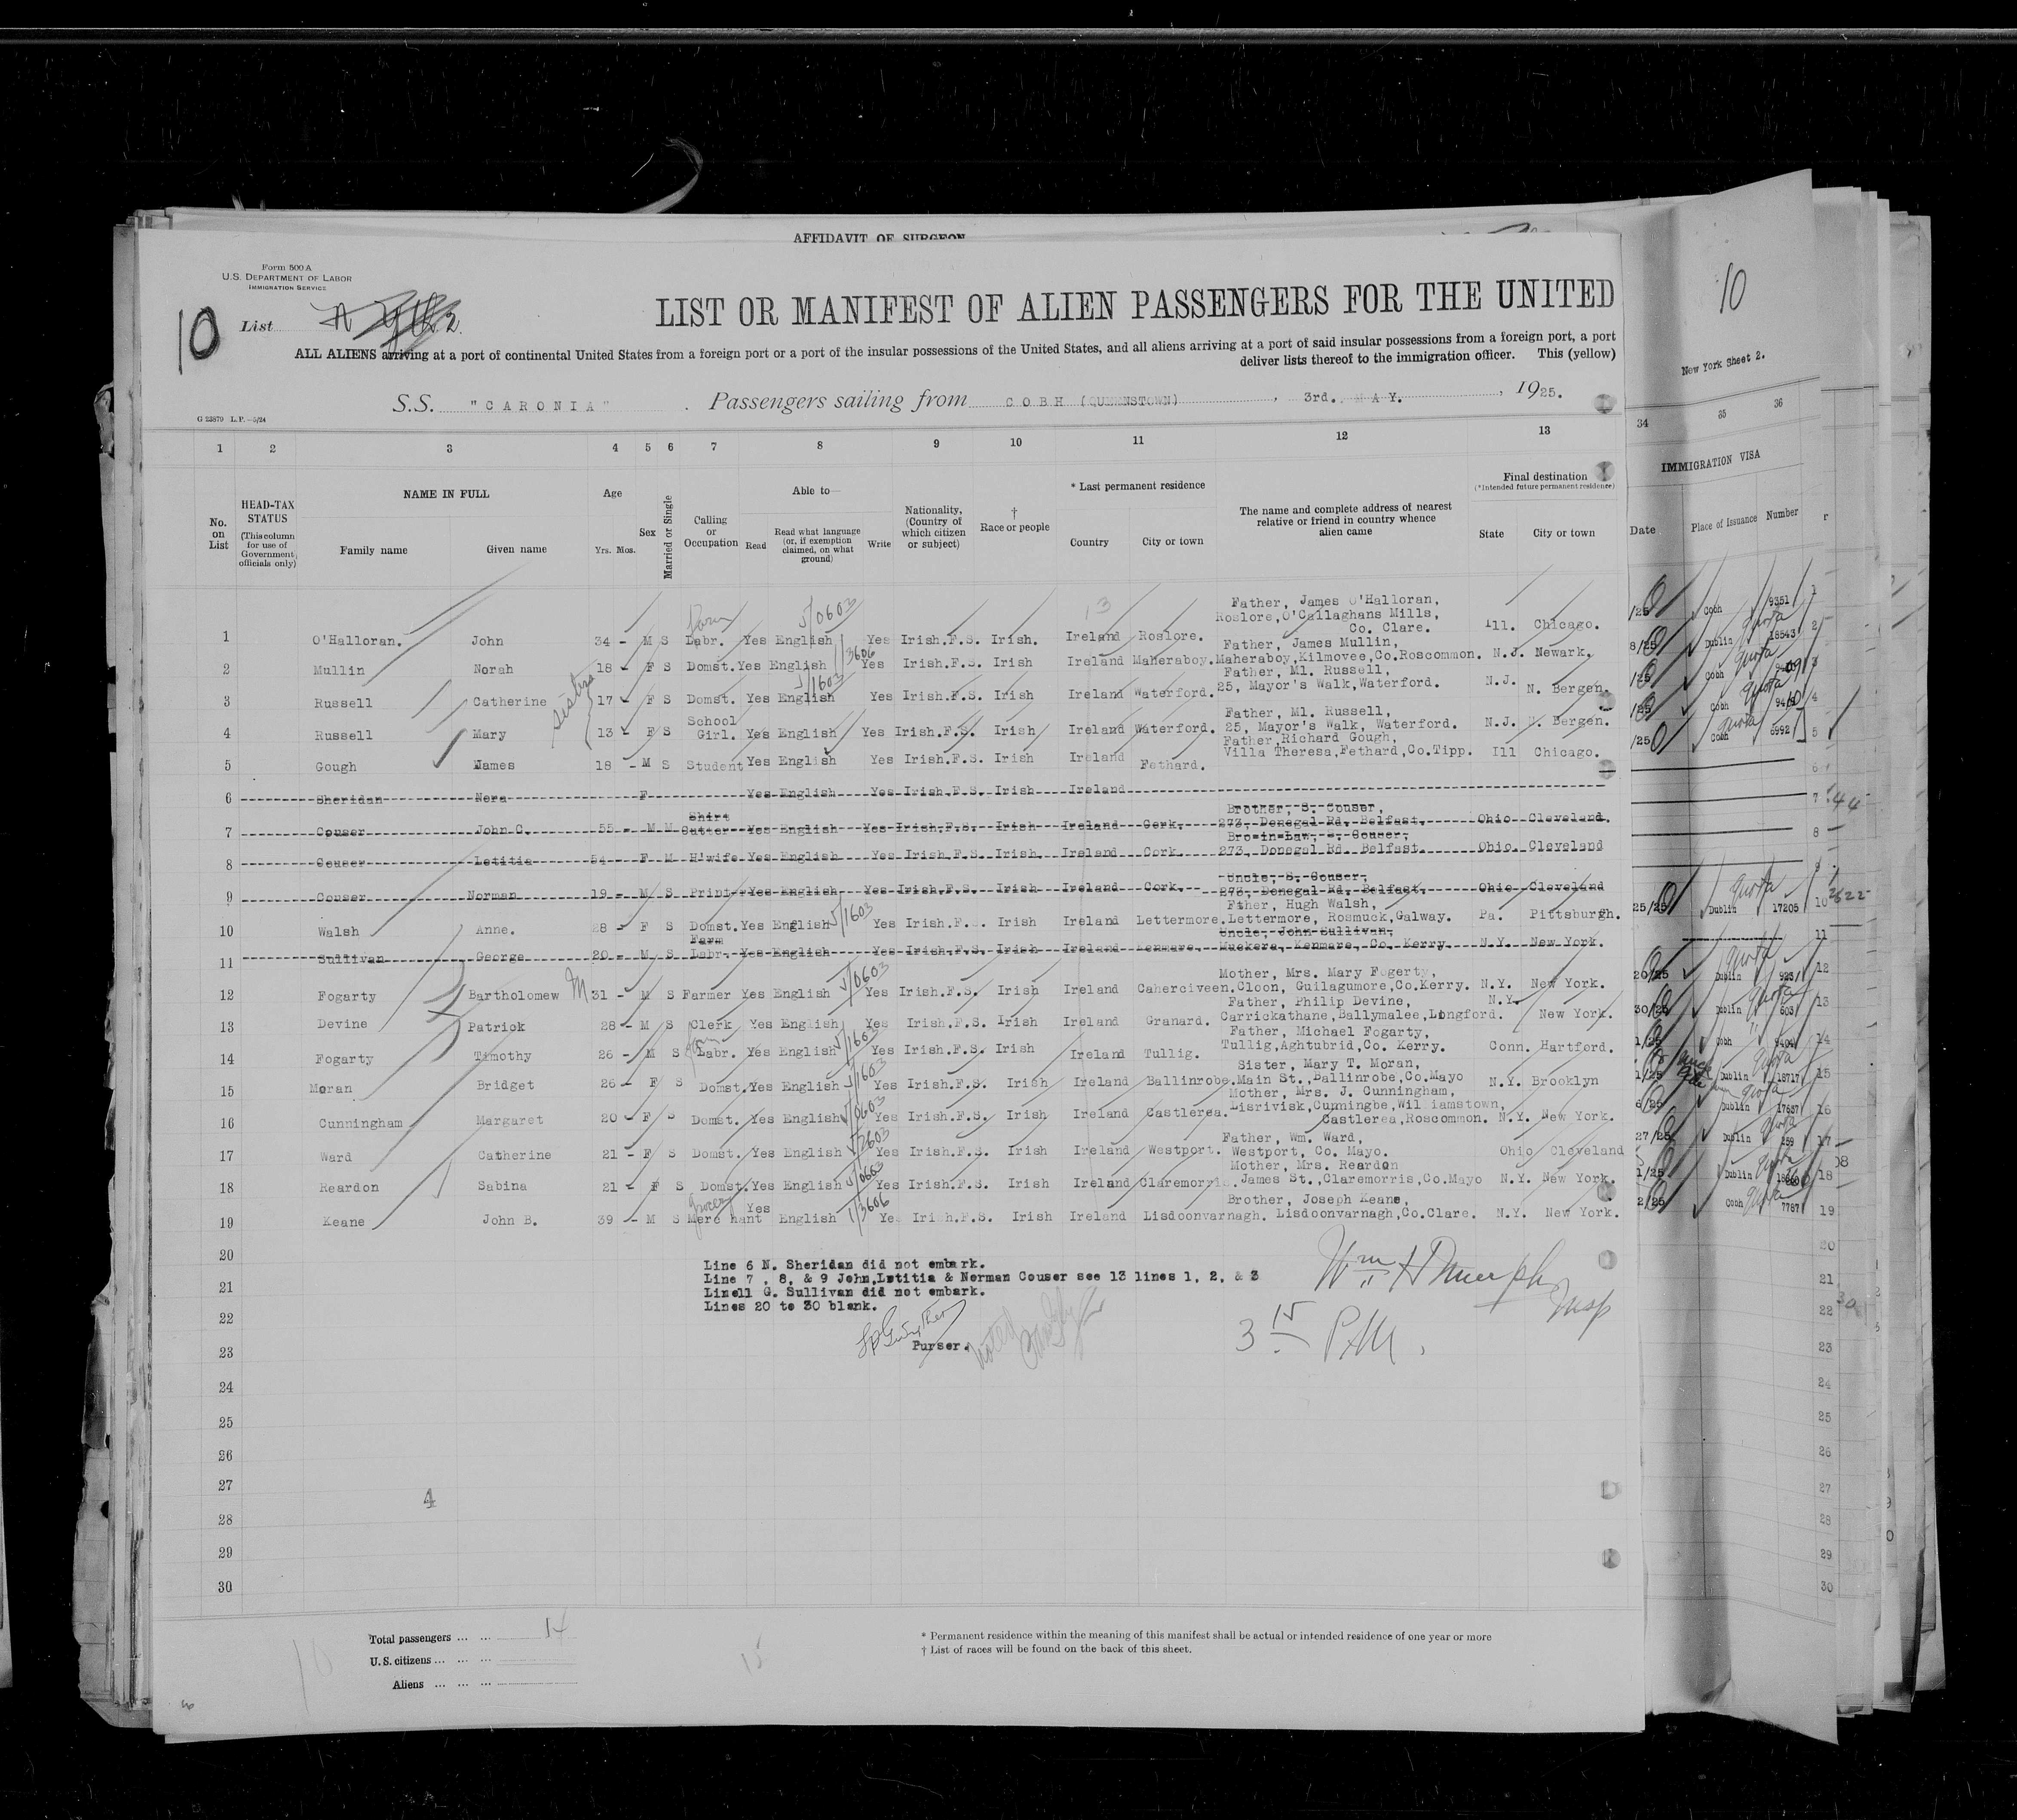 AFFIDAVIT OF SURGEON
Form 500 A
U.S. DEPARTMENT OF LABOR
IMMIGRATION SERVICE
10 List 2.
LIST OR MANIFEST OF ALIEN PASSENGERS FOR THE UNITED
ALL ALIENS arriving at a port of continental United States from a foreign port or a port of the insular possessions of the United States, and all aliens arriving at a port of said insular possessions from a foreign port, a port
deliver lists thereof to the immigration officer. This (yellow)
S.S. "CARONIA". Passengers sailing from COBH (QUEENSTOWN), 3rd. MAY., 1925.
G 23879 L.P.—5/24
1 2 3 4 5 6 7 8 9 10 11 12 13
No. on List
HEAD-TAX STATUS (This column for use of Government officials only)
NAME IN FULL
Family name Given name
Age Yrs. Mos.
Sex
Married or Single
Calling or Occupation
Able to—
Read Read what language (or, if exemption claimed, on what ground) Write
Nationality, (Country of which citizen or subject)
† Race or people
* Last permanent residence
Country City or town
The name and complete address of nearest relative or friend in country whence alien came
Final destination
(*Intended future permanent residence)
State City or town
13
Father, James O'Halloran,
Farm 5/0603 Roslore,O'Callaghans Mills,
Co. Clare.
1 O'Halloran. John 34 - M S Labr. Yes English Yes Irish.F.S. Irish. Ireland Roslore. Ill. Chicago.
1/3606 Father, James Mullin,
2 Mullin Norah 18 - F S Domst. Yes English Yes Irish.F.S. Irish Ireland Maheraboy. Maheraboy,Kilmovee,Co.Roscommon. N.J. Newark,
sisters 5/1603 Father, Ml. Russell,
3 Russell Catherine 17 - F S Domst. Yes English Yes Irish.F.S. Irish Ireland Waterford. 25, Mayor's Walk,Waterford. N.J. N. Bergen.
School Father, Ml. Russell,
4 Russell Mary 13 F S Girl. Yes English Yes Irish.F.S. Irish Ireland Waterford. 25, Mayor's Walk, Waterford. N.J. N. Bergen.
Father,Richard Gough,
5 Gough James 18 - M S Student Yes English Yes Irish.F.S. Irish Ireland Fethard. Villa Theresa,Fethard,Co.Tipp. Ill Chicago.
6 Sheridan Nora F Yes English Yes Irish.F.S. Irish Ireland
Shirt Brother, S. Couser,
7 Couser John C. 55 - M M Cutter Yes English Yes Irish.F.S. Irish Ireland Cork. 273, Donegal Rd, Belfast. Ohio Cleveland.
Bro-in-Law, S. Couser,
8 Couser Letitia 54 - F M H'wife Yes English Yes Irish.F.S. Irish Ireland Cork 273, Donegal Rd. Belfast. Ohio. Cleveland
Uncle, S. Couser,
9 Couser Norman 19 - M S Print Yes English Yes Irish.F.S. Irish Ireland Cork. 273, Donegal Rd, Belfast, Ohio Cleveland
5/1603 Father, Hugh Walsh,
10 Walsh Anne. 28 - F S Domst. Yes English Yes Irish.F. Irish Ireland Lettermore. Lettermore, Rosmuck,Galway. Pa. Pittsburgh.
Farm Uncle, John Sullivan,
11 Sullivan George 20 - M S Labr. Yes English Yes Irish.F.S. Irish Ireland Kenmare. Muckera, Kenmare, Co. Kerry N.Y. New York.
5/0603 Mother, Mrs. Mary Fogerty,
12 Fogarty Bartholomew M 31 - M S Farmer Yes English Yes Irish.F.S. Irish Ireland Caherciveen. Cloon, Guilagumore,Co.Kerry. N.Y. New York.
Father, Philip Devine,
13 Devine Patrick 28 - M S Clerk Yes English Yes Irish.F.S. Irish Ireland Granard. Carrickathane,Ballymalee,Longford. N.Y. New York.
Farm 5/1603 Father, Michael Fogarty,
14 Fogarty Timothy 26 - M S Labr. Yes English Yes Irish.F.S. Irish Ireland Tullig. Tullig,Aghtubrid,Co. Kerry. Conn. Hartford.
5/1603 Sister, Mary T. Moran,
15 Moran Bridget 26 - F S Domst. Yes English Yes Irish.F.S. Irish Ireland Ballinrobe. Main St.,Ballinrobe,Co.Mayo N.Y. Brooklyn
5/0603 Mother, Mrs. J. Cunningham,
Lisrivisk,Cunningbe,Williamstown,
16 Cunningham Margaret 20 - F S Domst. Yes English Yes Irish.F.S. Irish Ireland Castlerea. Castlerea,Roscommon. N.Y. New York.
5/2603 Father, Wm. Ward,
17 Ward Catherine 21 - F S Domst. Yes English Yes Irish.F.S. Irish Ireland Westport. Westport, Co. Mayo. Ohio Cleveland
5/0603 Mother, Mrs. Reardon
18 Reardon Sabina 21 - F S Domst. Yes English Yes Irish.F.S. Irish Ireland Claremorris. James St.,Claremorris,Co.Mayo N.Y. New York.
Grocery 1/3606 Brother, Joseph Keane,
19 Keane John B. 39 - M S Merchant Yes English Yes Irish.F.S. Irish Ireland Lisdoonvarnagh. Lisdoonvarnagh,Co.Clare. N.Y. New York.
20
21
22
23
24
25
26
27
28
29
30
Line 6 N. Sheridan did not embark.
Line 7 , 8, & 9 John,Letitia & Norman Couser see 13 lines 1, 2, & 3
Line11 G. Sullivan did not embark.
Lines 20 to 30 blank.
Purser.
noted
Wm H Murphy
Insp
3 15 P.M.
4
Total passengers ... ... 14
U.S. citizens ... ... ...
Aliens ... ... ...
10
15
* Permanent residence within the meaning of this manifest shall be actual or intended residence of one year or more
† List of races will be found on the back of this sheet.
10
New York Sheet 2.
34 35 36
IMMIGRATION VISA
Date Place of Issuance Number
/25 Cobh 9351 1
8/25 Dublin Quota 18543 2
/25 Cobh Quota 9409 3
/25 Cobh Quota 9410 4
/25 Cobh Quota 6992 5
6
7
8
9
25/25 Dublin Quota 17205 10
11
20/25 Dublin Quota 923 12
30/25 Dublin Quota 603 13
1/25 Cobh " 9404 14
1/25 Dublin Quota 18717 15
6/25 Dublin Quota 17637 16
27/25 Dublin Quota 259 17
1/25 Dublin Quota 18
2/25 Cobh Quota 7787 19
20
21
22
23
24
25
26
27
28
29
30